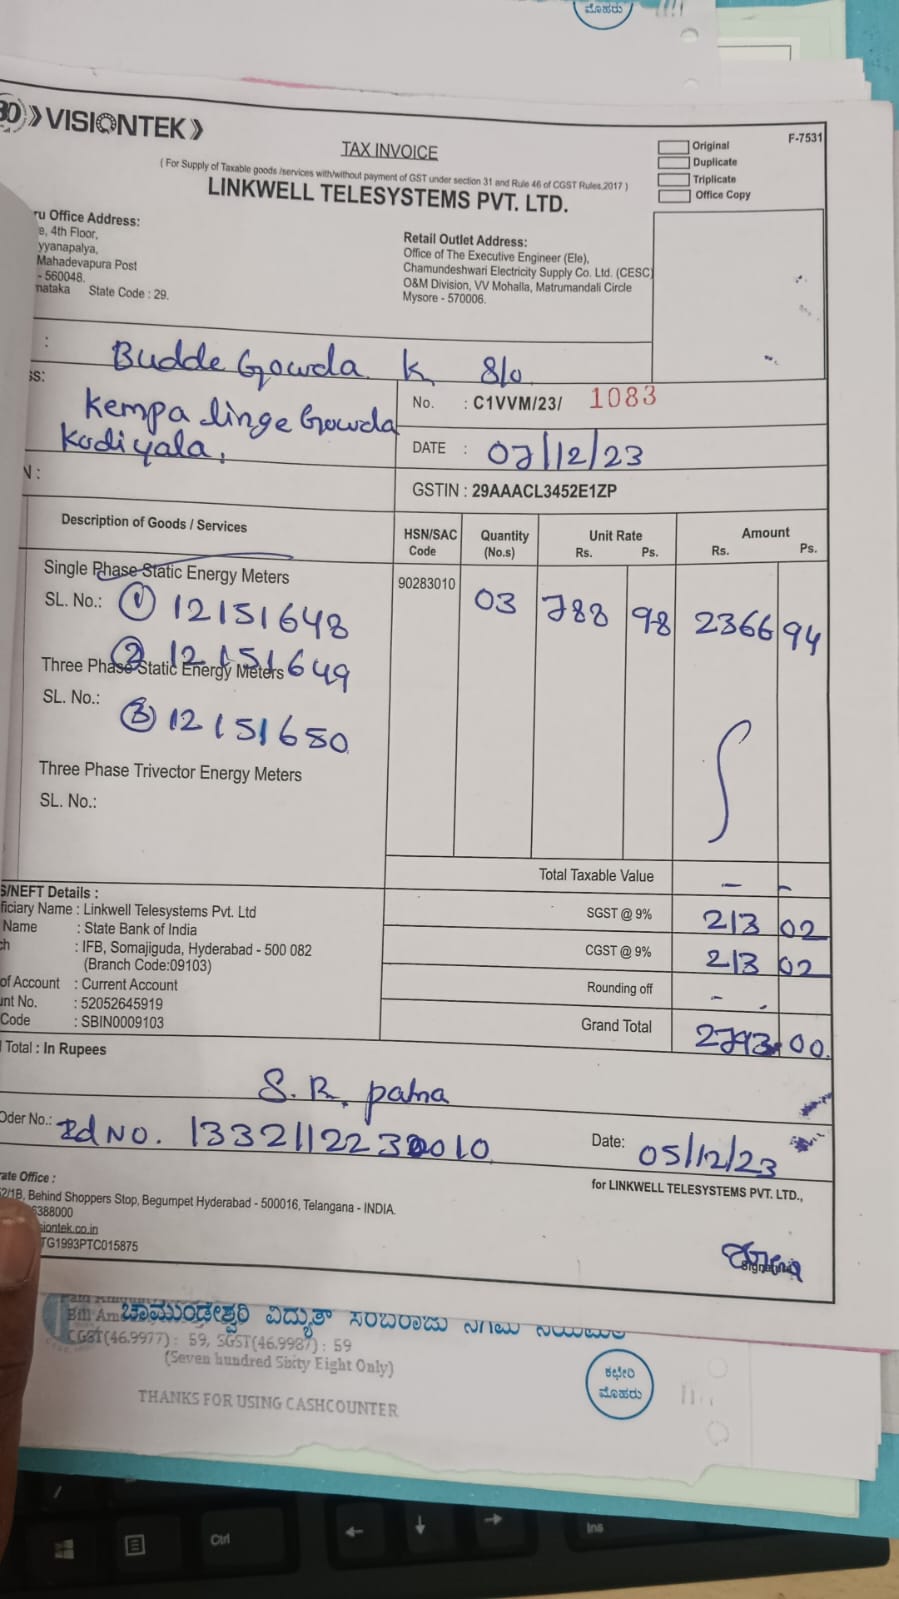 ಮೊಹರು
VISIONTEK
F-7531
TAX INVOICE
Original
Duplicate
Triplicate
Office Copy
( For Supply of Taxable goods /services with/without payment of GST under section 31 and Rule 46 of CGST Rules,2017 )
LINKWELL TELESYSTEMS PVT. LTD.
ru Office Address:
e, 4th Floor,
yyanapalya,
Mahadevapura Post
- 560048.
nataka State Code : 29.
Retail Outlet Address:
Office of The Executive Engineer (Ele),
Chamundeshwari Electricity Supply Co. Ltd. (CESC)
O&M Division, VV Mohalla, Matrumandali Circle
Mysore - 570006.
: Budde Gowda K S/o
ss: Kempa linge Gowda
Kodiyala,
No. : C1VVM/23/ 1083
DATE : 07/12/23
N :
GSTIN : 29AAACL3452E1ZP
Description of Goods / Services HSN/SAC Code Quantity (No.s) Unit Rate Rs. Ps. Amount Rs. Ps.
Single Phase Static Energy Meters 90283010 03 788 98 2366 94
SL. No.: 1 12151648
2 12151649
Three Phase Static Energy Meters
SL. No.:
3 12151650
Three Phase Trivector Energy Meters
SL. No.:
Total Taxable Value - -
SGST @ 9% 213 02
CGST @ 9% 213 02
Rounding off -
Grand Total 2793.00
S/NEFT Details :
ficiary Name : Linkwell Telesystems Pvt. Ltd
Name : State Bank of India
ch : IFB, Somajiguda, Hyderabad - 500 082
(Branch Code:09103)
of Account : Current Account
unt No. : 52052645919
Code : SBIN0009103
l Total : In Rupees
S.R. patna
Oder No.: Rd No. 1332112230010 Date: 05/12/23
rate Office :
2/1B, Behind Shoppers Stop, Begumpet Hyderabad - 500016, Telangana - INDIA.
6388000
siontek.co.in
TG1993PTC015875
for LINKWELL TELESYSTEMS PVT. LTD.,
Bill Am
ಚಾಮುಂಡೇಶ್ವರಿ ವಿದ್ಯುತ್ ಸರಬರಾಜು ನಿಗಮ ನಿಯಮಿತ
CGST(46.9977) : 59, SGST(46.9987) : 59
(Seven hundred Sixty Eight Only)
THANKS FOR USING CASHCOUNTER
ಕಛೇರಿ
ಮೊಹರು
Ctrl
Ins